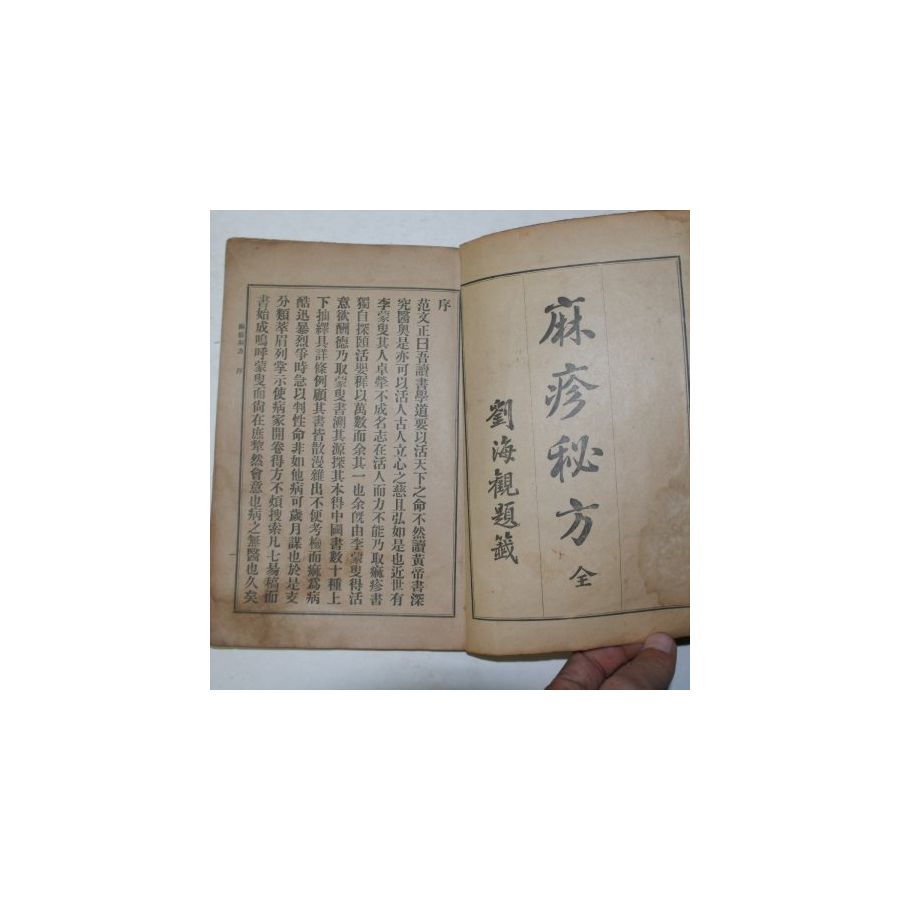 麻疹秘方 全
劉海觀題籤
序
范文正曰吾讀書學道要以活天下之命不然讀黃帝書深
究醫奧是亦可以活人古人立心之慈且弘如是也近世有
李蒙叟其人卓犖不成名志在活人而力不能乃取痲疹書
獨自探頤活嬰穉以萬數而余其一也余旣由李蒙叟得活
意欲酬德乃取蒙叟書溯其源探其本得中國書數十種上
下抽繹具詳條例顧其書皆散漫雜出不便考檢而痲爲病
酷迅暴烈爭時急以判性命非如他病可歲月謀也於是支
分類萃眉列掌示使病家開卷得方不煩搜索凡七易稿而
書始成嗚呼蒙叟而尙在庶犂然會意也病之無醫也久矣